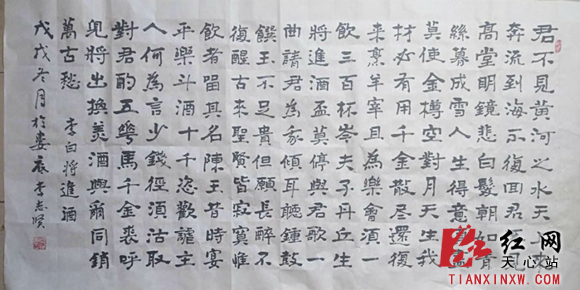 君不見黃河之水天
奔流到海不復回君
高堂明鏡悲白髮朝如青
絲暮成雪人生得意盡
莫使金樽空對月天生我
材必有用千金散尽還復
来烹羊宰且為樂會須一
飲三百杯岑夫子丹丘生
將進酒盃莫停與君歌一
曲請君為我傾耳聽鍾鼓
饌玉不足貴但願長醉不
復醒古來聖賢皆寂寞惟
飲者留其名陳王昔時宴
平樂斗酒十千恣歡謔主
人何為言少錢徑須沽取
對君酌五華馬千金裘呼
兒將出換美酒與爾同銷
萬古愁 李白將進酒
戊戌冬月於婁底李志賢
红网
天心站
TIANXINXW.CH